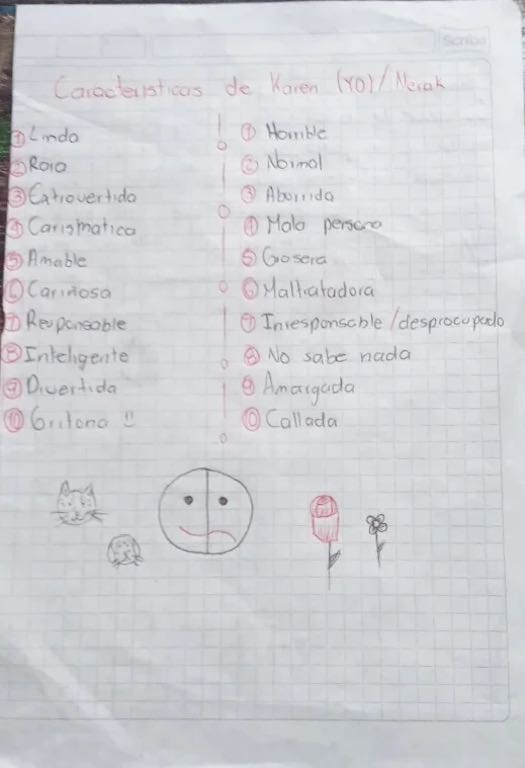 Scribe
Características de Karen (YO)/Nerak
① Linda
② Rara
③ Extrovertida
④ Carismatica
⑤ Amable
⑥ Cariñosa
⑦ Responsable
⑧ Inteligente
⑨ Divertida
⑩ Gritona !!
① Horrible
② Normal
③ Aburrida
④ Mala persona
⑤ Grosera
⑥ Maltratadora
⑦ Irresponsable/desprocupado
⑧ No sabe nada
⑨ Amargada
⑩ Callada